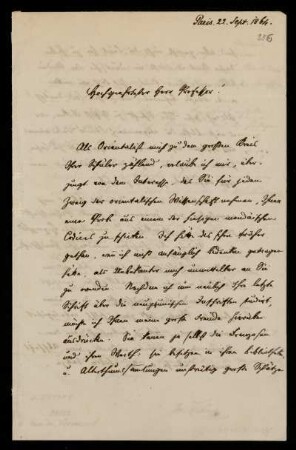 Paris 22. Sept. 1864.
Hochgeehrtester Herr Professor!
Als Orientalist mich zu dem großen Kreis
Ihrer Schüler zählend, erlaube ich mir, über-
zeugt von dem Interesse, das Sie für jeden
Zweig der orientalischen Wissenschaft nehmen, Ihnen
eine Probe aus einem der hiesigen mandäischen
Codices zu schicken. Ich hätte dies schon früher
gethan, wenn ich nicht anfänglich Bedenken getragen
hätte, als Unbekannter mich unmittelbar an Sie
zu wenden. Nachdem ich nun neulich Ihre letzte
Schrift über die Inschriften studirt,
möchte ich Ihnen meine große Freude darüber
ausdrücken. Sie kennen ja selbst die Franzosen
und ihren Werth; sie besitzen in ihren Bibliotheken
u. Alterthumssammlungen unstreitig große Schätze